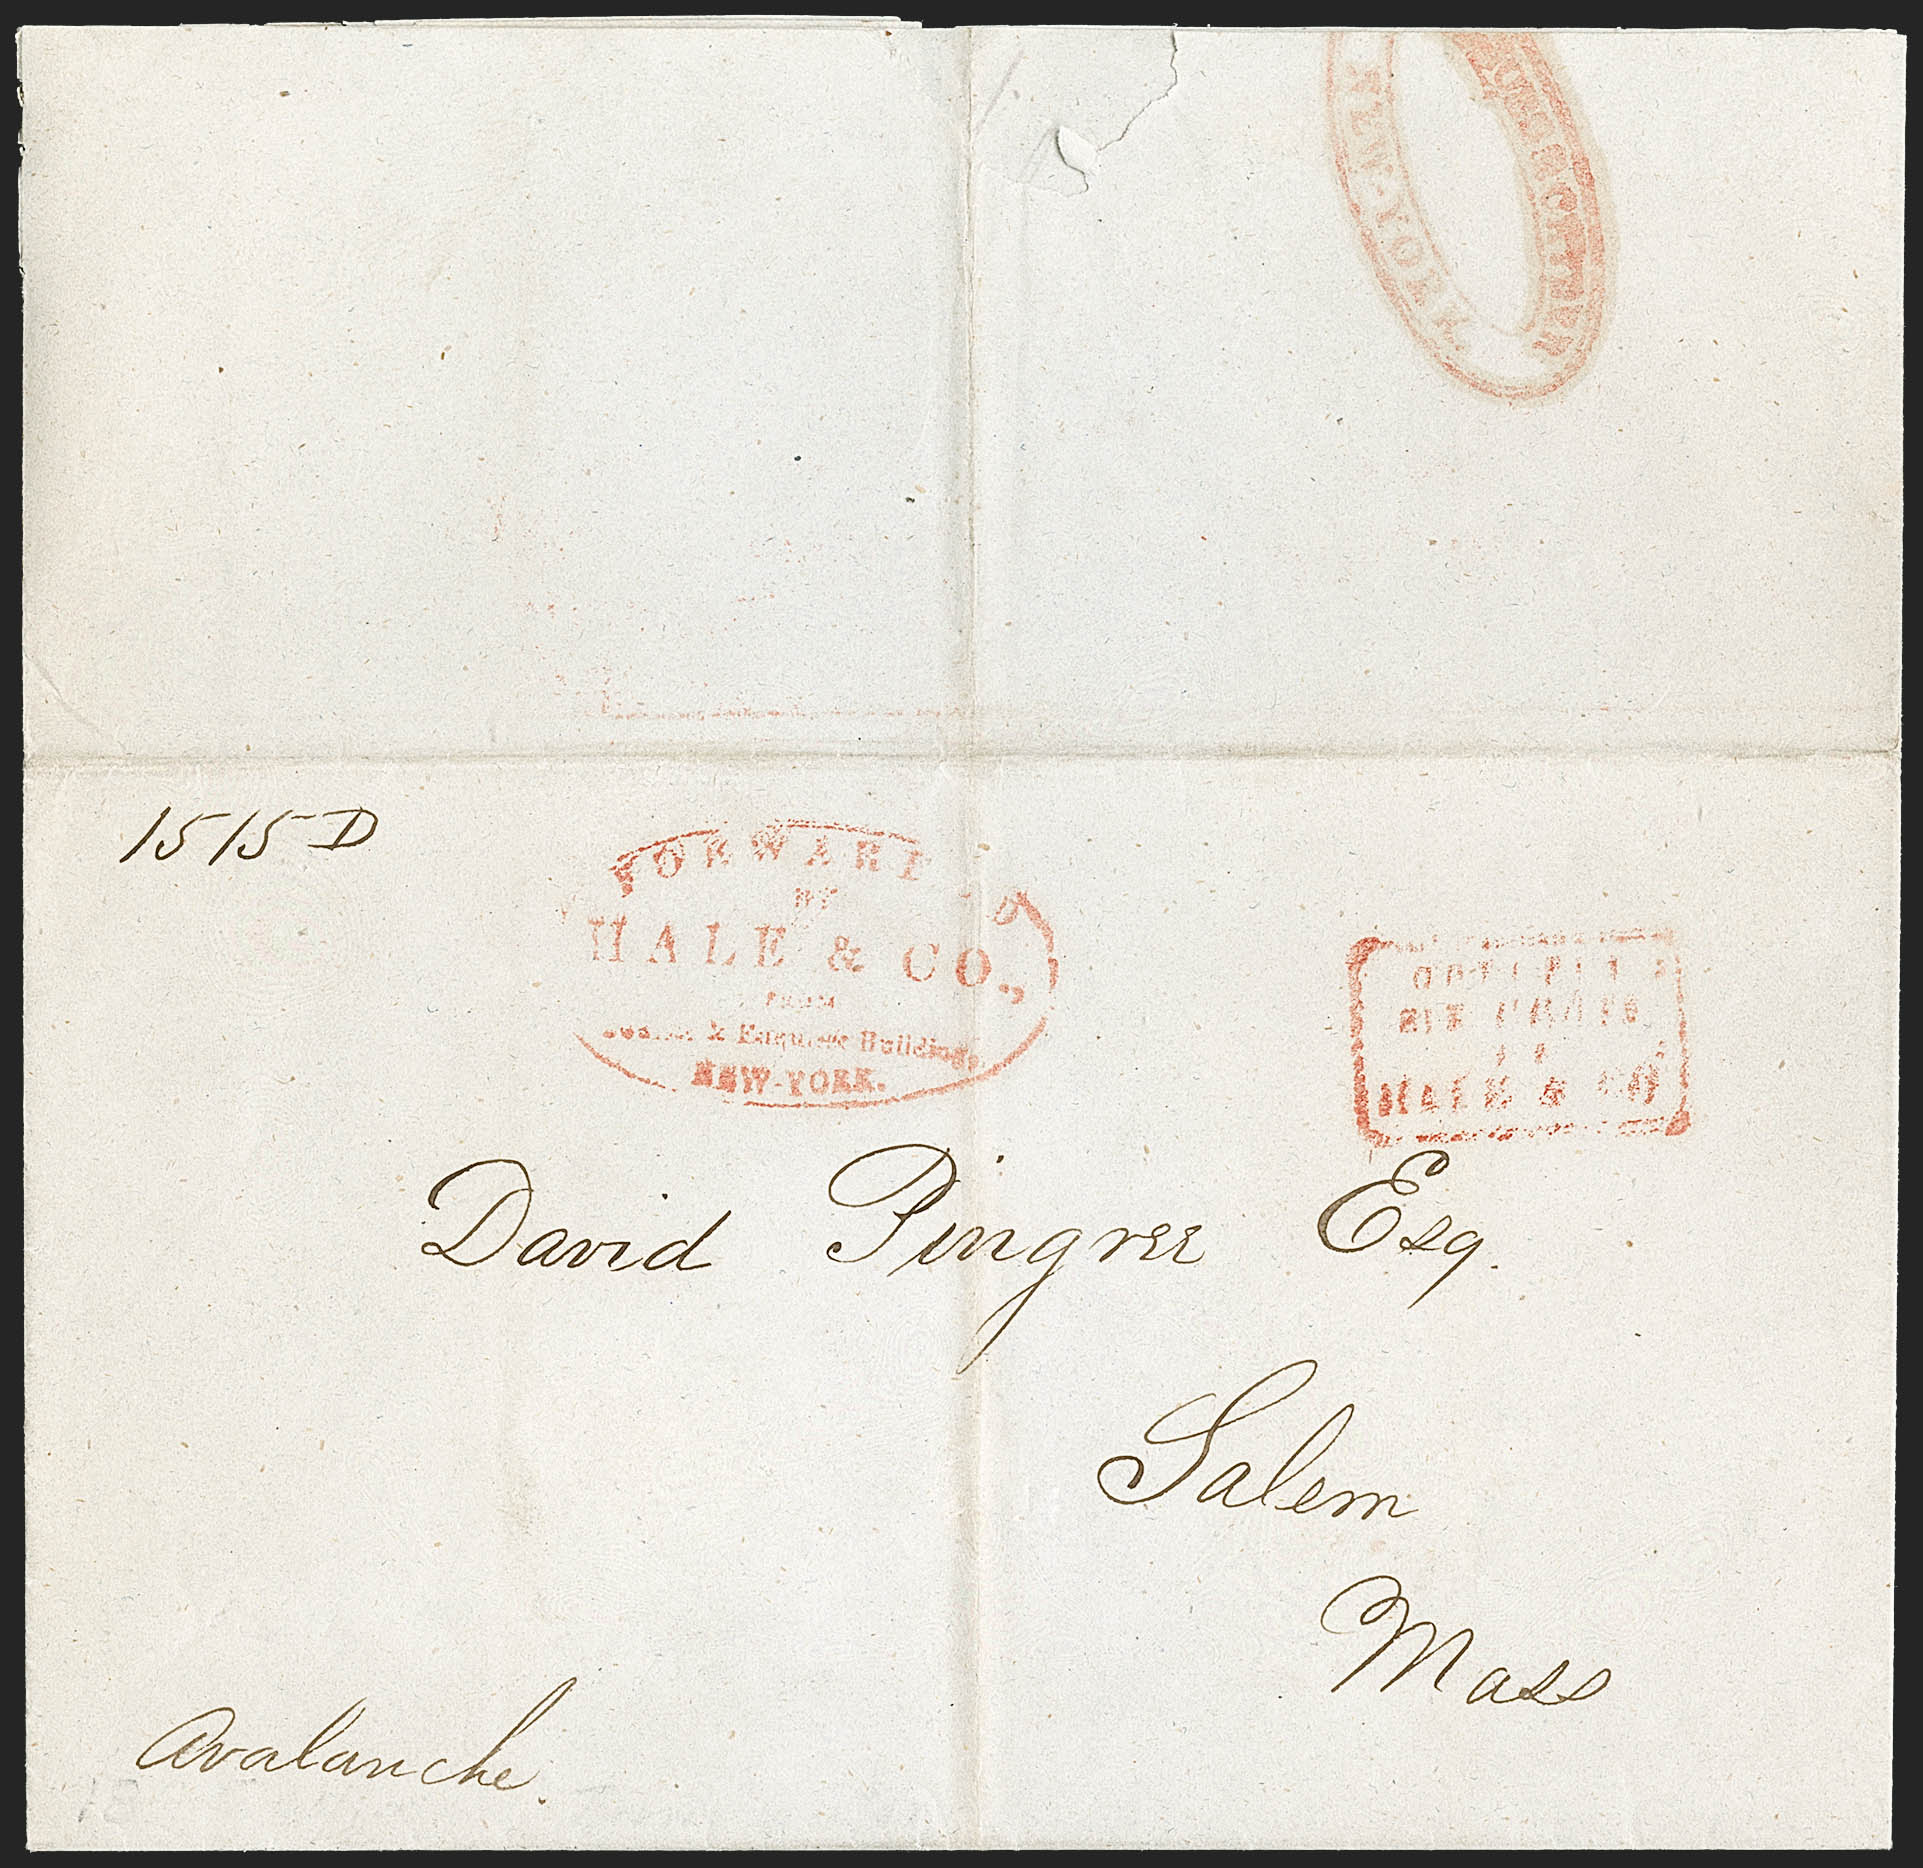 NEW-YORK.
1515 D
FORWARDED
BY
HALE & CO.,
FROM
& Exquisite Buildings
NEW-YORK.
SIX CENTS
HALE & CO
David Pingree Esq.
Salem
Mass
Avalanche.